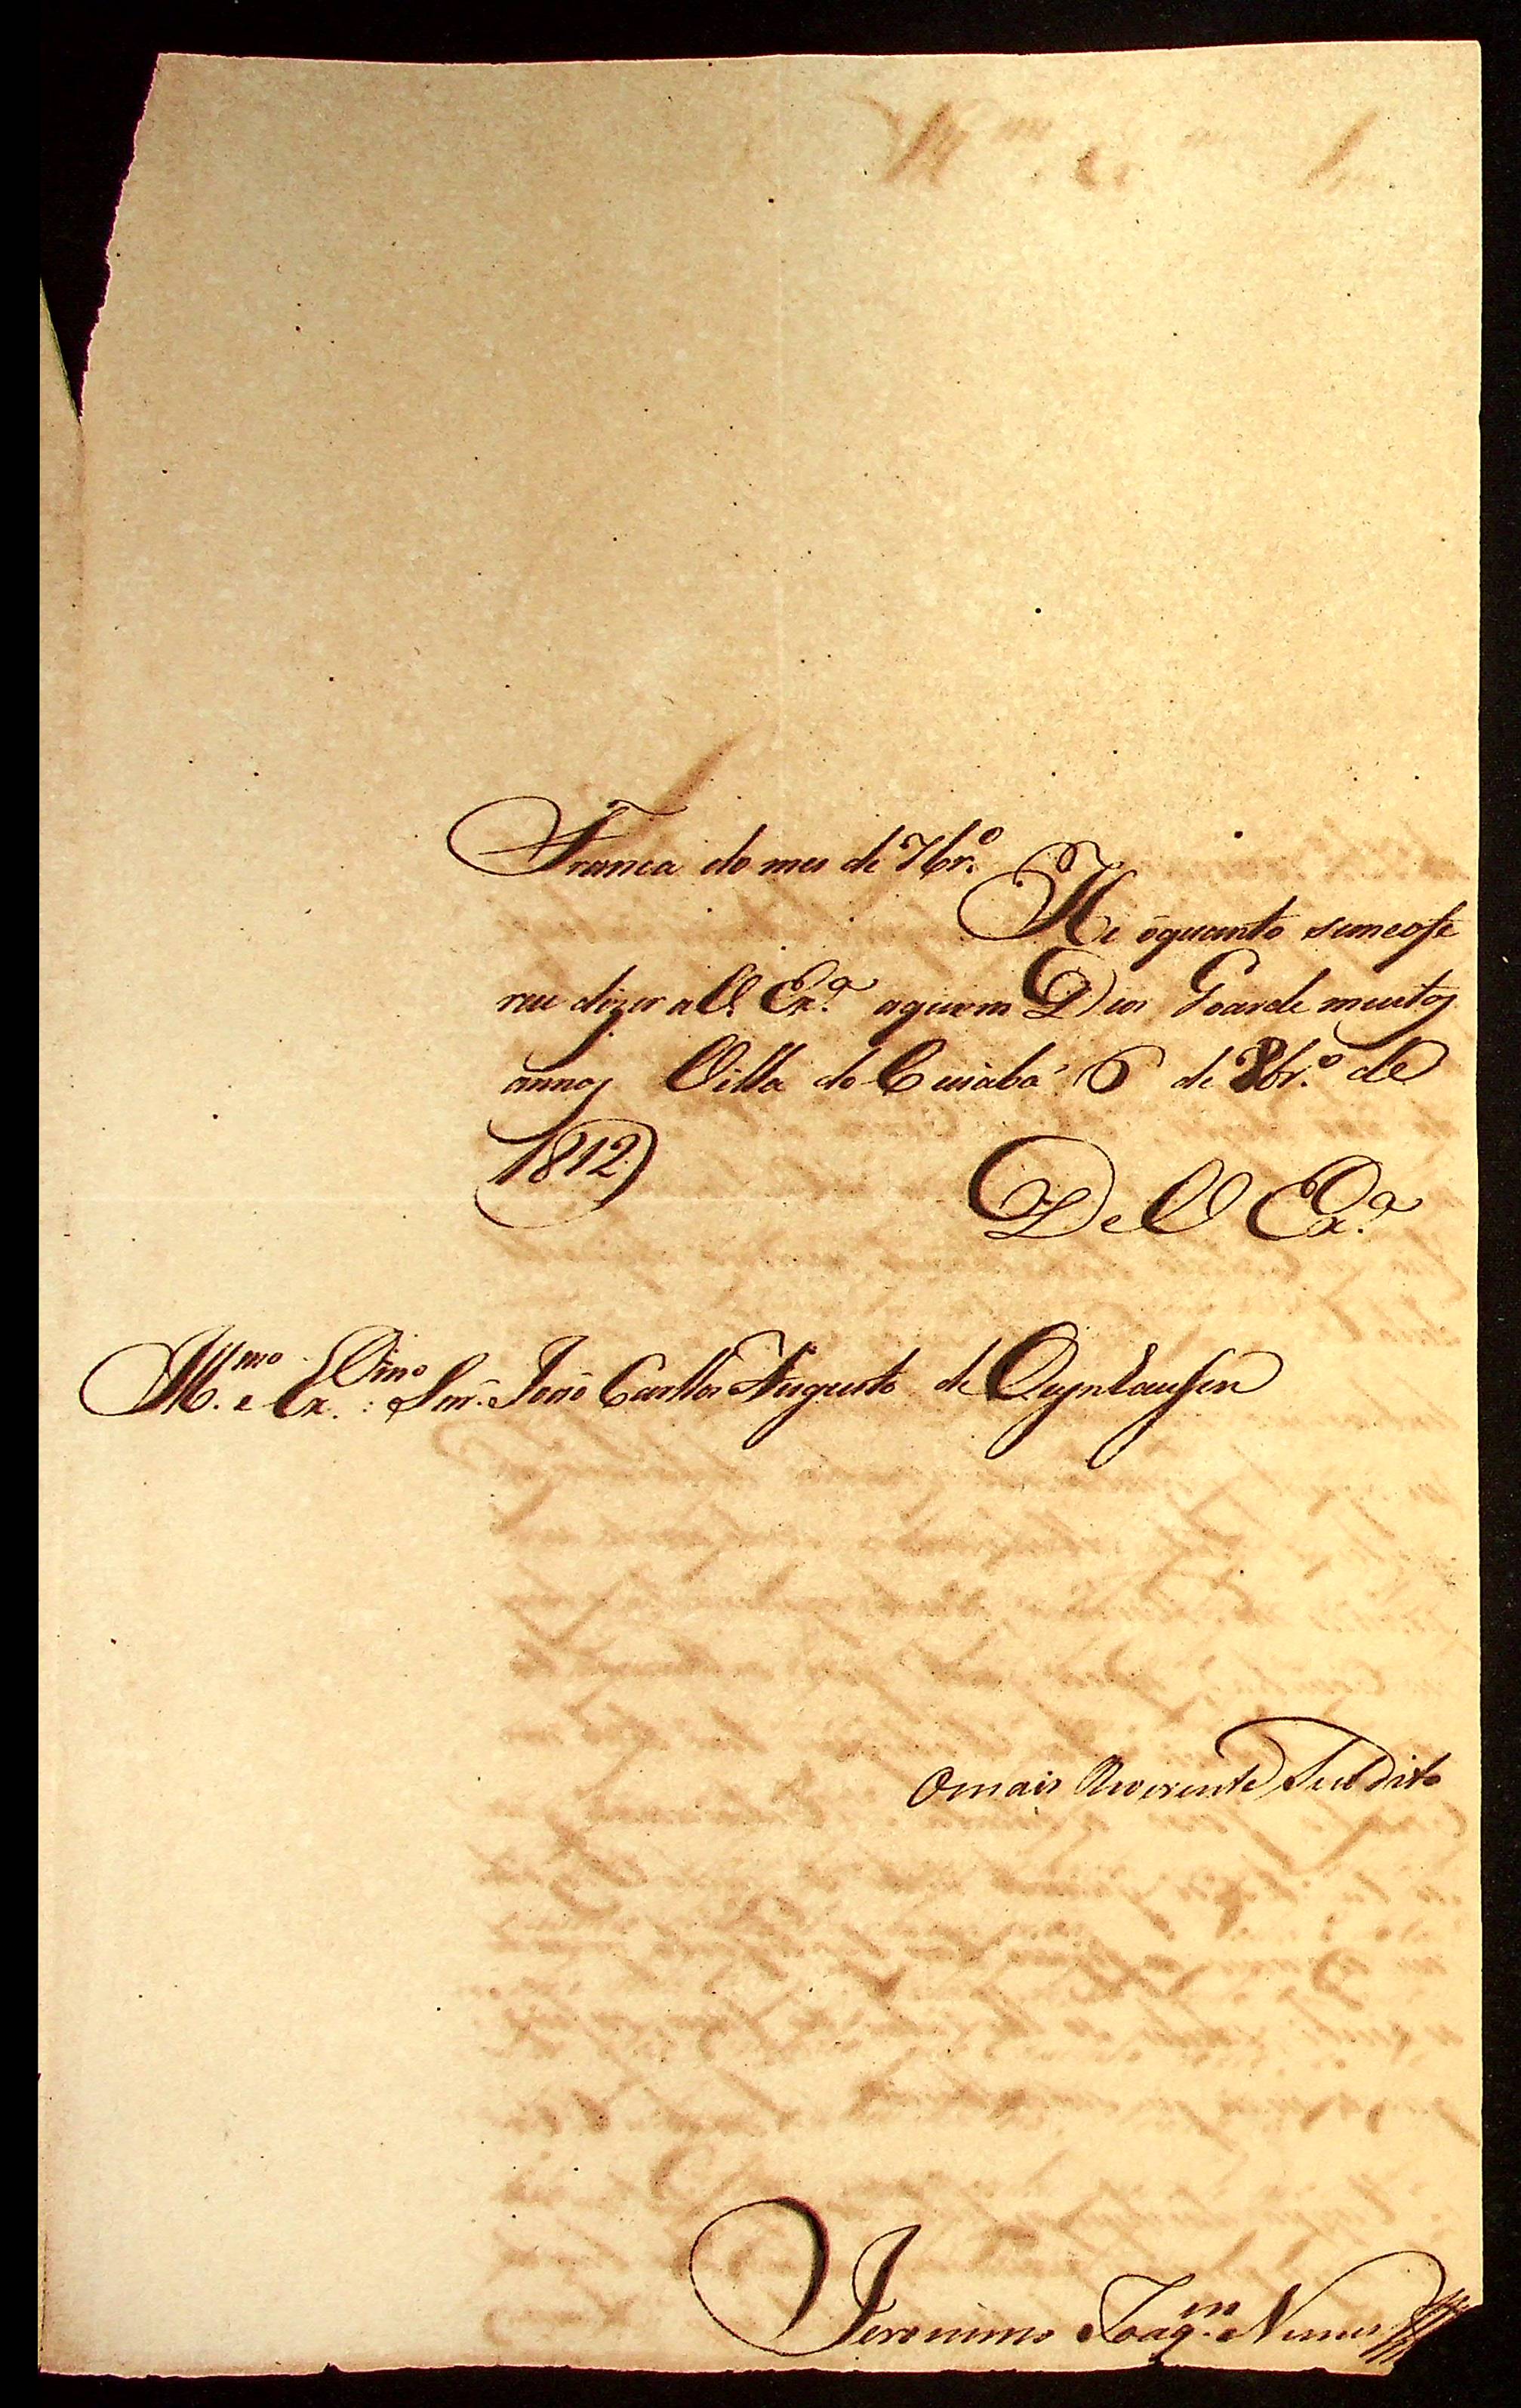 Franca do mes de 7br.º
He oquanto semeofe
reu dizer a V. Ex.ª aquem Deos Goarde muitos
annos Villa do Cuiabá 6 de 8br.º de
1812
De V Ex.ª
Ill.mo e Ex.mo Snr. João Carllos Augusto de Oeynhausen
Omais Reverente Subdito
Jeronimo Joaq.m Nunes